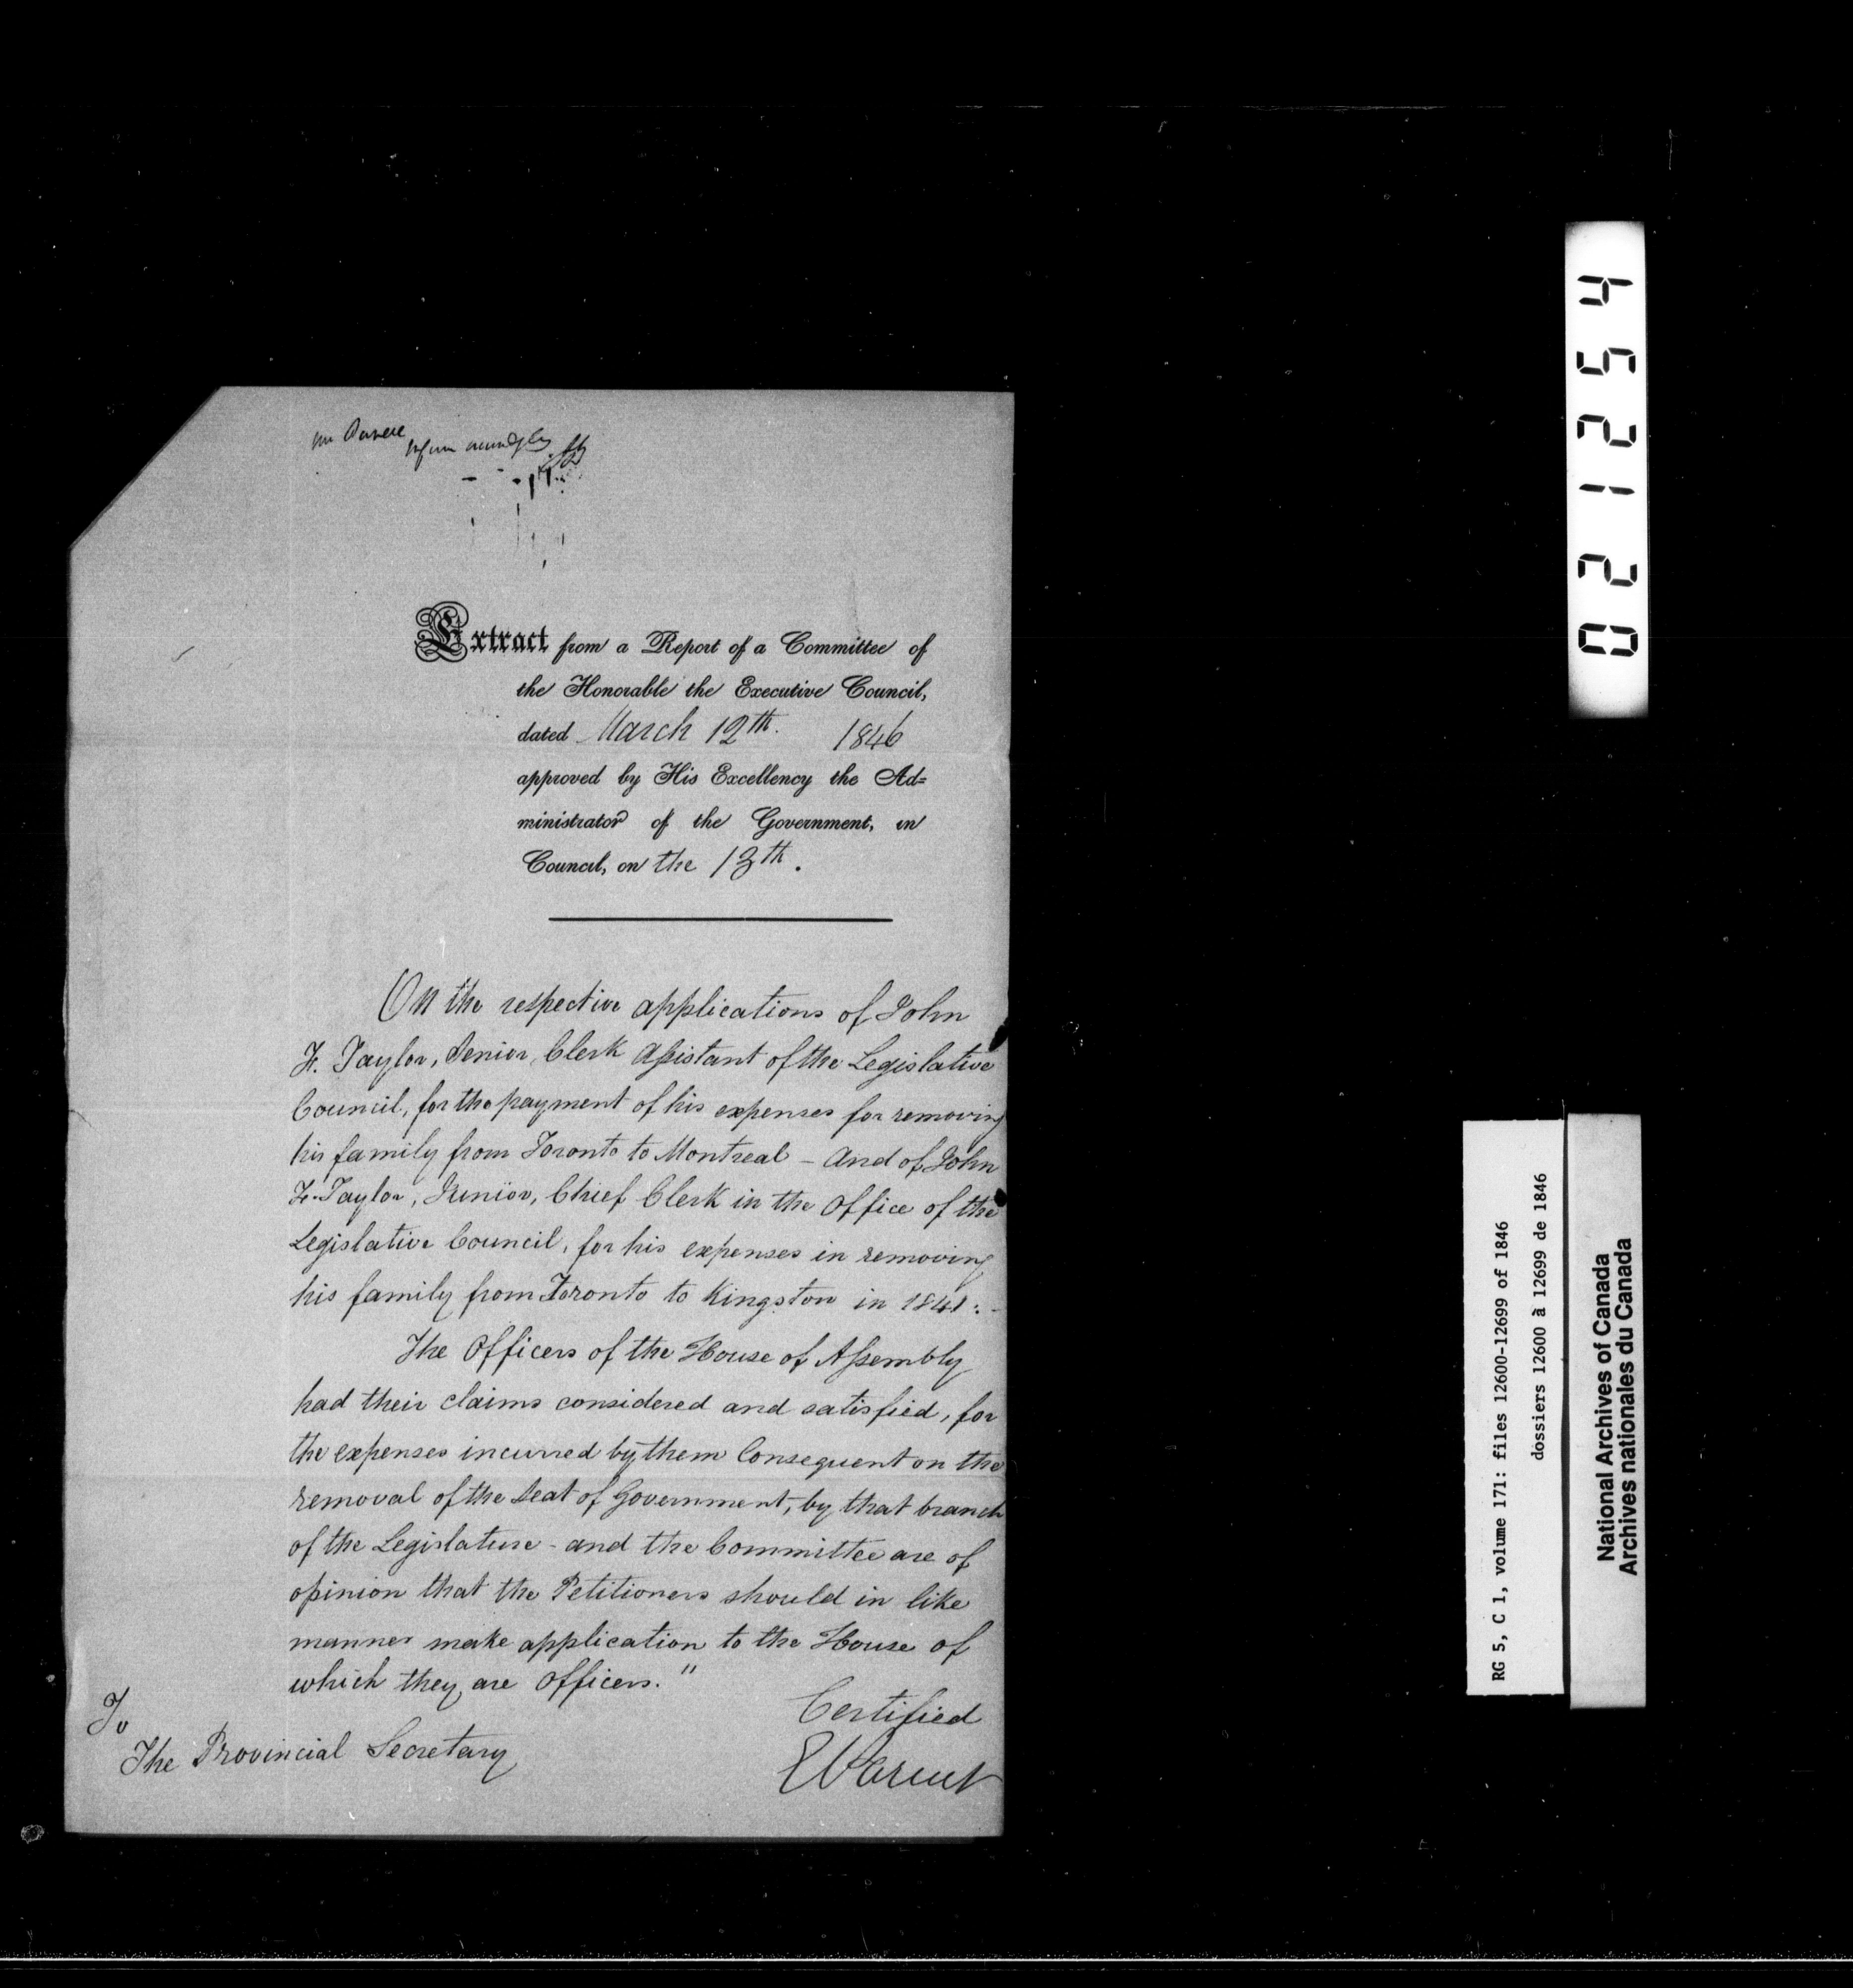 Mr
Inform accordingly
Extract from a Report of a Committee of
the Honorable the Executive Council,
dated March 12th. 1846
approved by His Excellency the Ad=
ministrator of the Government, in
Council, on the 13th.
On the respective applications of John
F. Taylor, Senior, Clerk Assistant of the Legislative
Council, for the payment of his expenses for removing
his family from Toronto to Montreal - And of John
F. Taylor, Junior, Chief Clerk in the Office of the
Legislative Council, for his expenses in removing
his family from Toronto to Kingston in 1841:-
The Officers of the House of Assembly
had their claims considered and satisfied, for
the expenses incurred by them Consequent on the
removal of the Seat of Government, by that branch
of the Legislature - and the Committee are of
opinion that the Petitioners should in like
manner make application to the House of
which they are Officers."
Certified
EParent
To
The Provincial Secretary
021254
RG 5, C 1, volume 171: files 12600-12699 of 1846
dossiers 12600 à 12699 de 1846
National Archives of Canada
Archives nationales du Canada